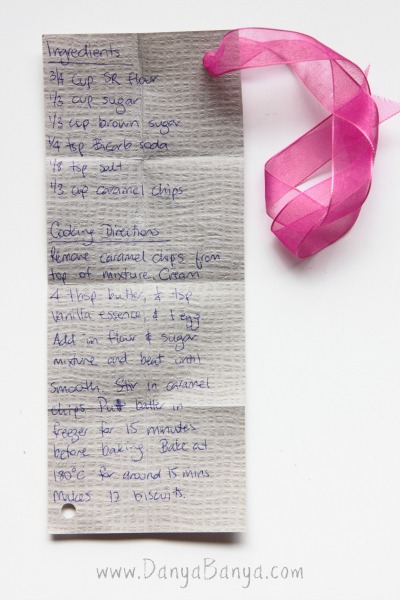 Ingredients
3/4 cup SR flour
1/3 cup sugar
1/3 cup brown sugar
1/4 tsp Bicarb soda
1/8 tsp salt
1/3 cup caramel chips
Cooking Directions
Remove caramel chips from
top of mixture. Cream
4 tbsp butter, tsp
Vanilla essence, & 1 egg
Add in flour & sugar
mixture and beat until
smooth. Stir in caramel
chips. Put batter in
freezer for 15 minutes
before baking. Bake at
180°C for around 15 mins.
Makes 12 biscuits.
www.DanyaBanya.com